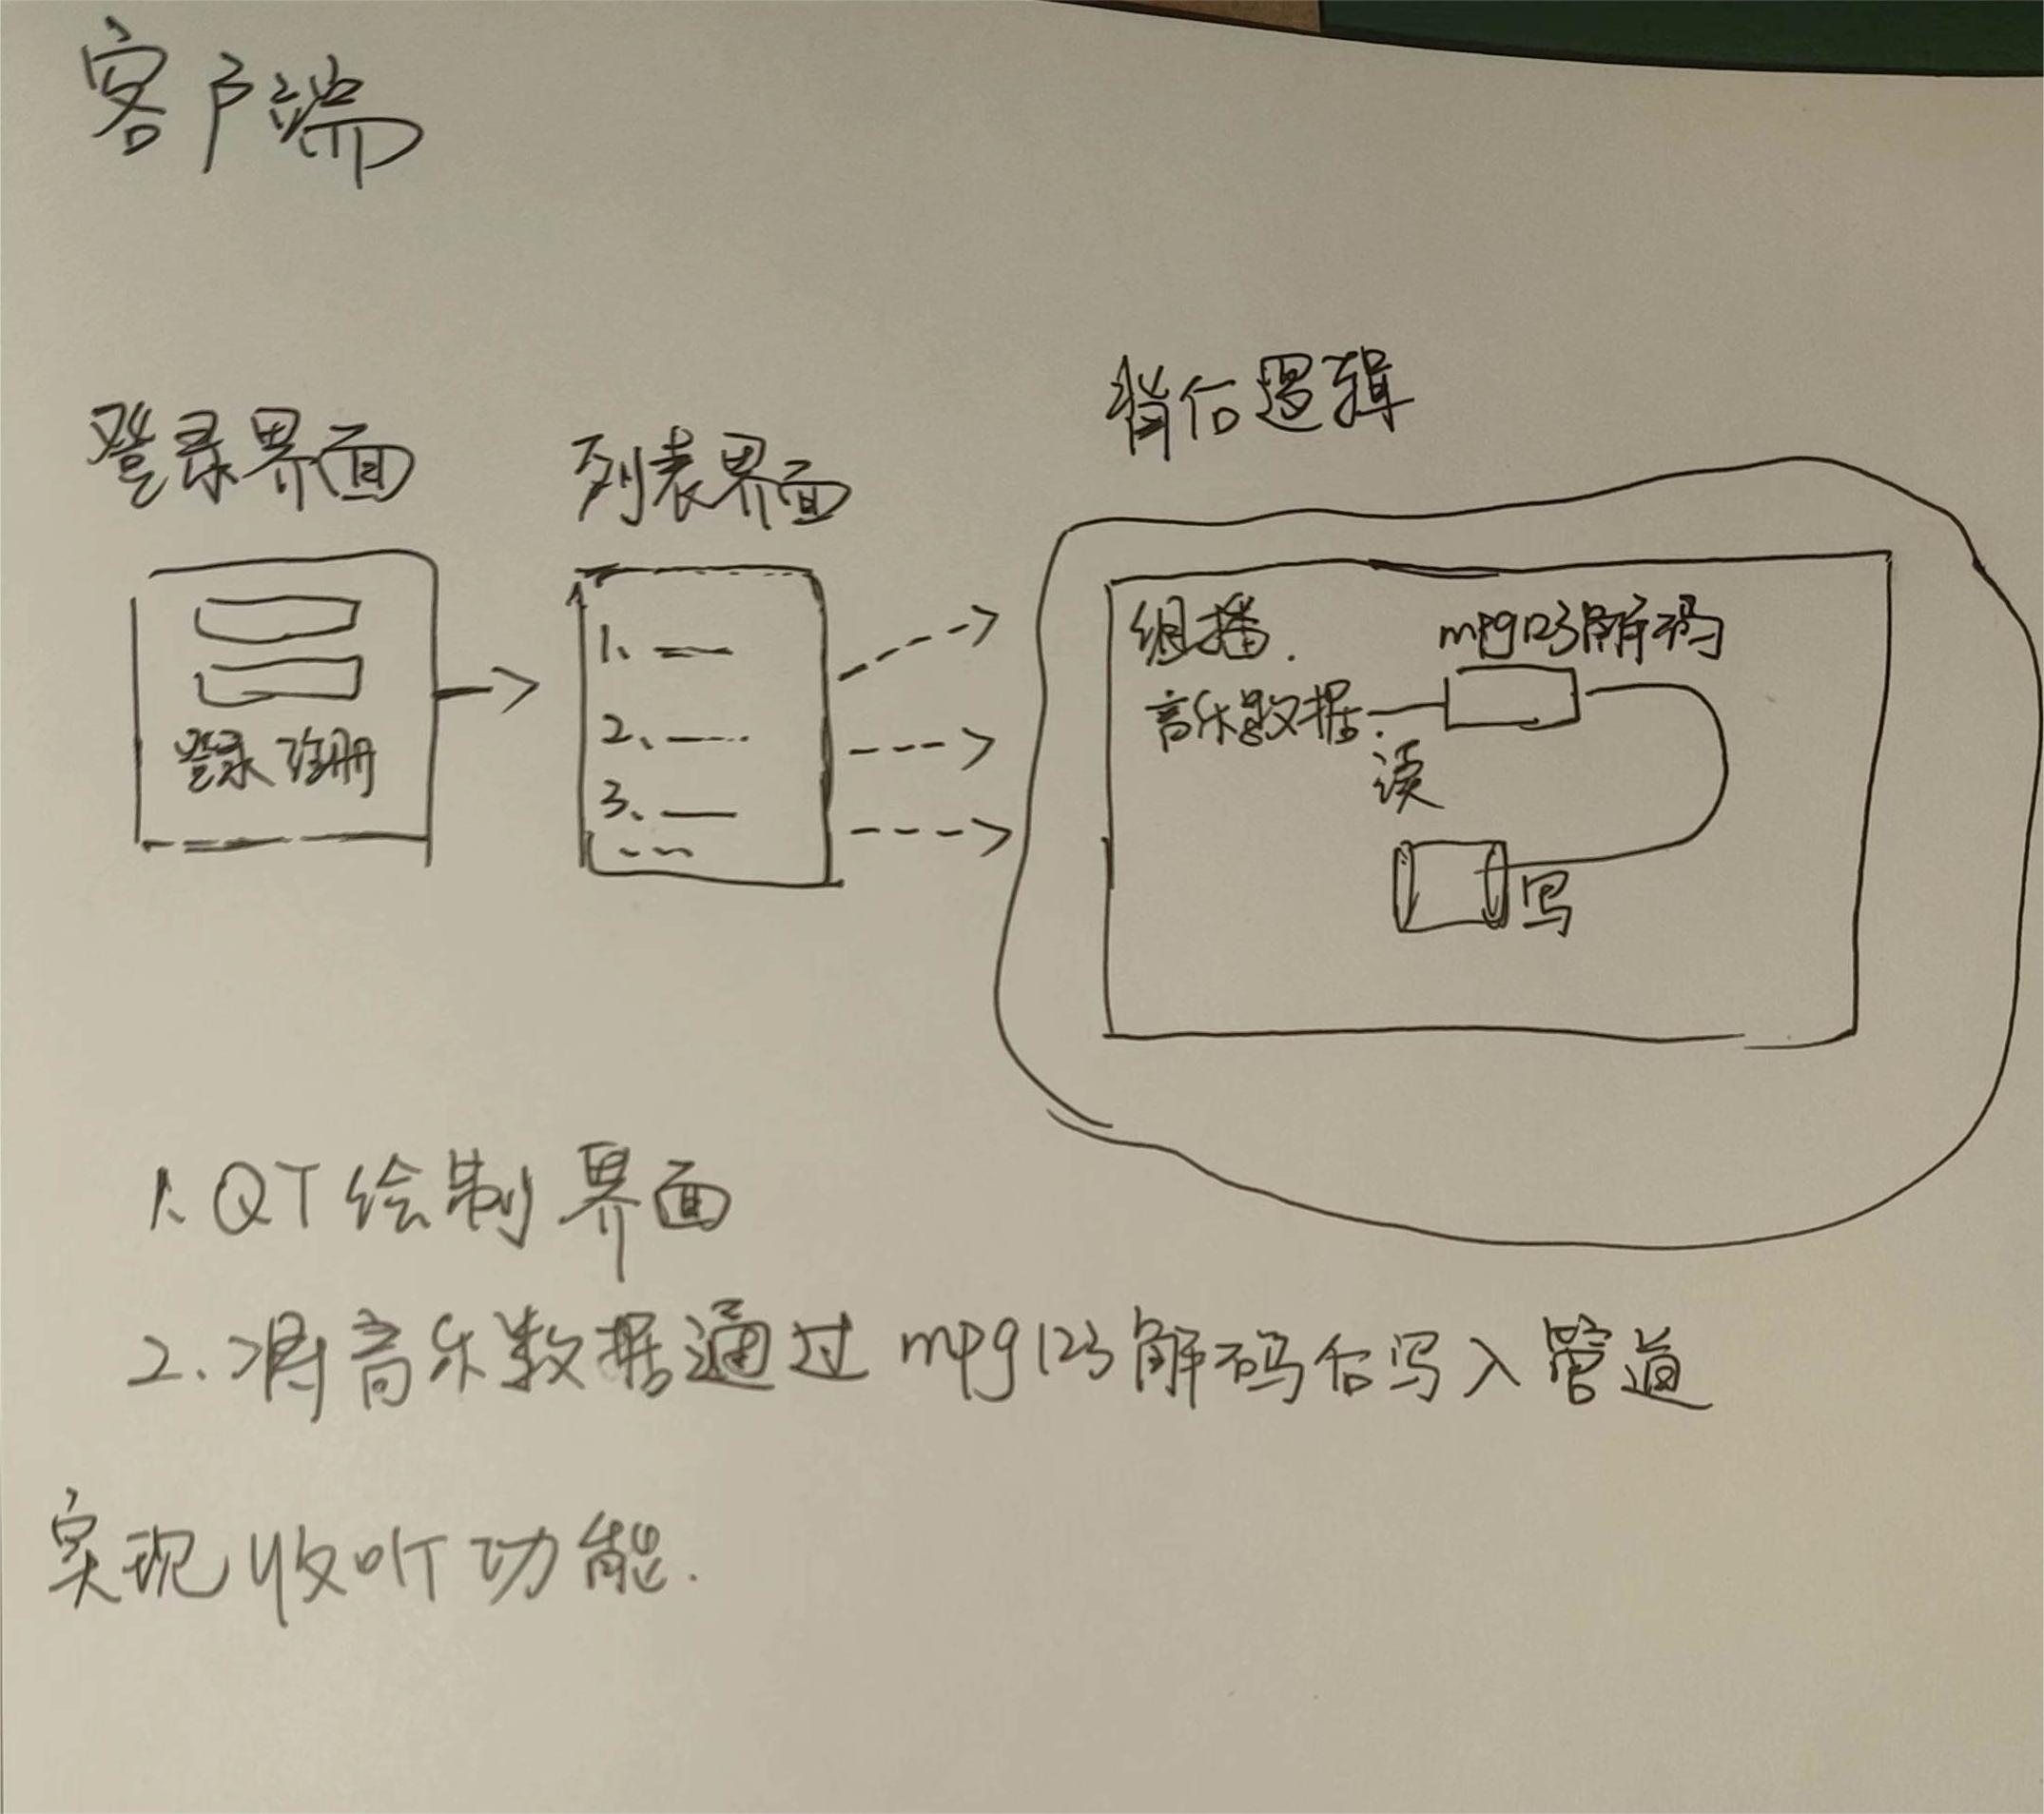 客户端
登录界面
列表界面
背后逻辑
登录 注册
1、
2、
3、
组播.
音乐数据.
mpg123解码
读
写
1. QT绘制界面
2. 将音乐数据通过mpg123解码后写入管道
实现收听功能.